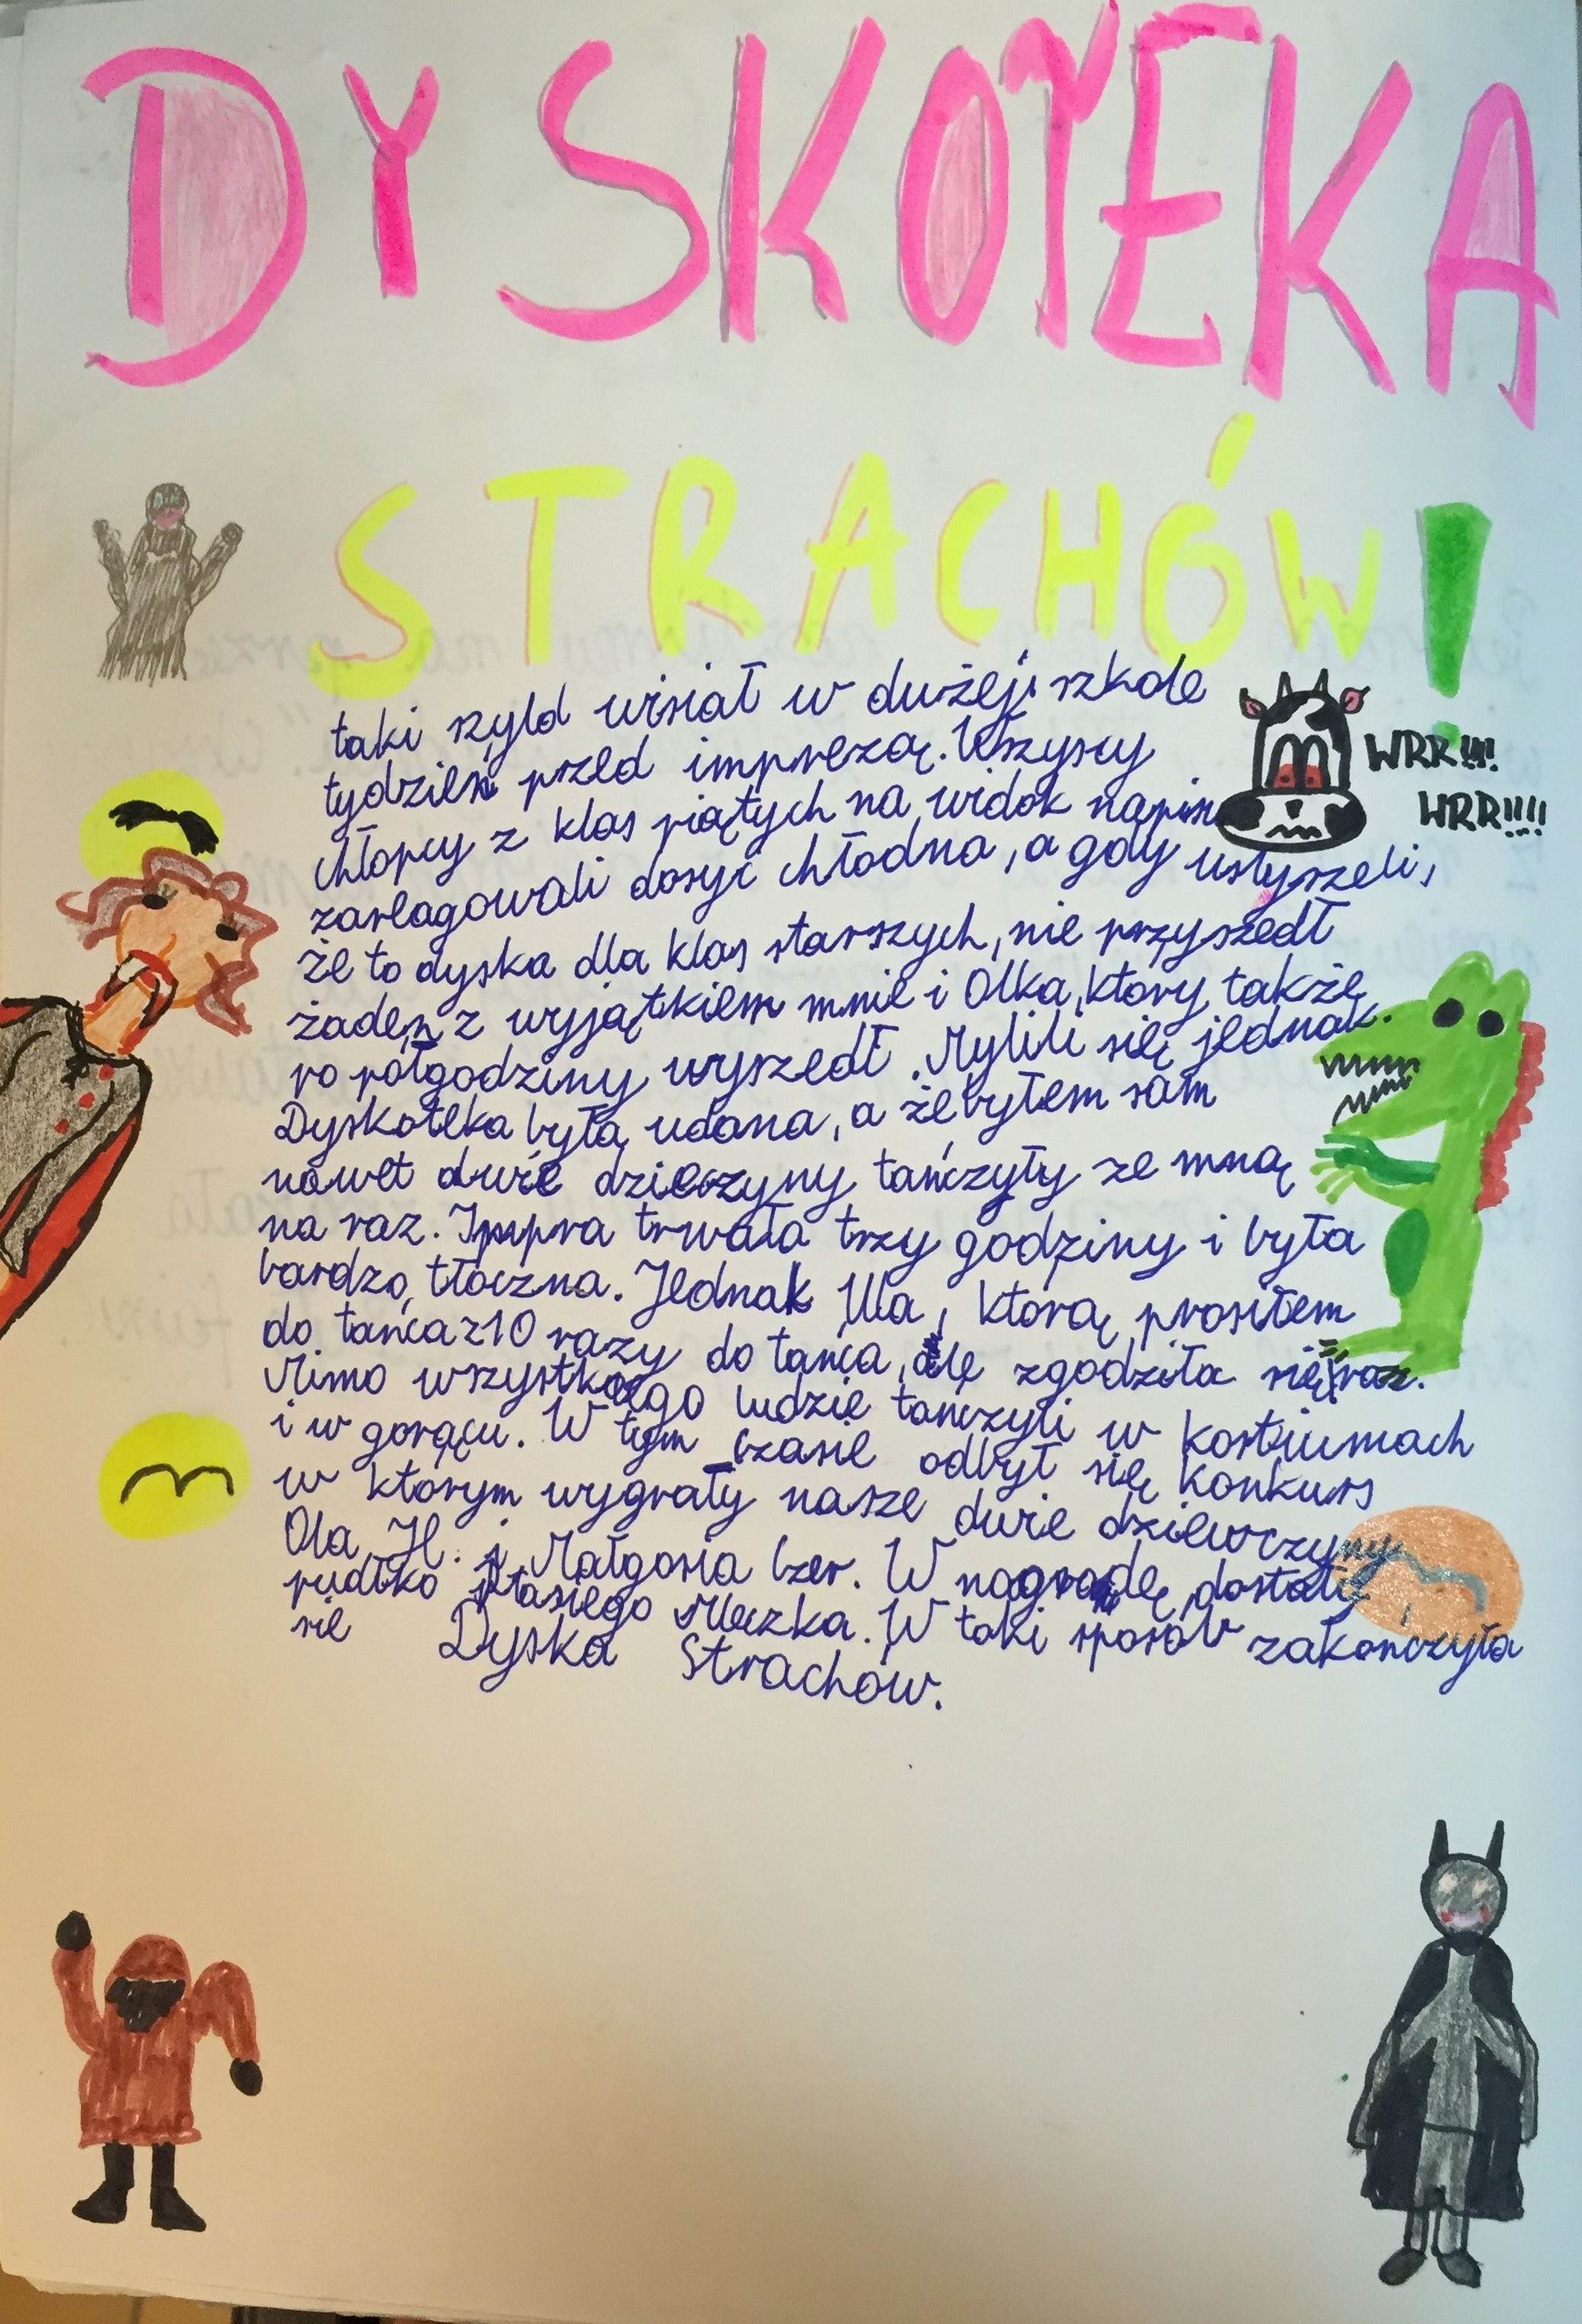 DYSKOTEKA
STRACHÓW!
taki szyld wisiał w dużej szkole
tydzień przed imprezą. Wszyscy
WRR!!!
chłopcy z klas piątych na widok napisu
WRR!!!!
zareagowali dosyć chłodna, a gdy usłyszeli,
że to dyska dla klas starszych, nie przyszedł
żaden z wyjątkiem mnie i Olka, który także
po półgodziny wyszedł. Mylili się jednak.
Dyskoteka była udana, a że byłem sam
nawet dwie dzieczyny tańczyły ze mną
na raz. Impra trwała trzy godziny i była
bardzo tłoczna. Jednak Ula, którą prosiłem
do tańca z 10 razy do tańca, zgodziła się raz.
Mimo wszystkiego ludzie tańczyli w kostiumach
i w gorącu. W tym czasie odbył się konkurs
w którym wygrały nasze dwie dziewczyny
Ola H. i Małgosia Czer. W nagrodę dostały
pudłko ptasiego Mleczka. W taki sposób zakończyła
sie Dyska Strachów.